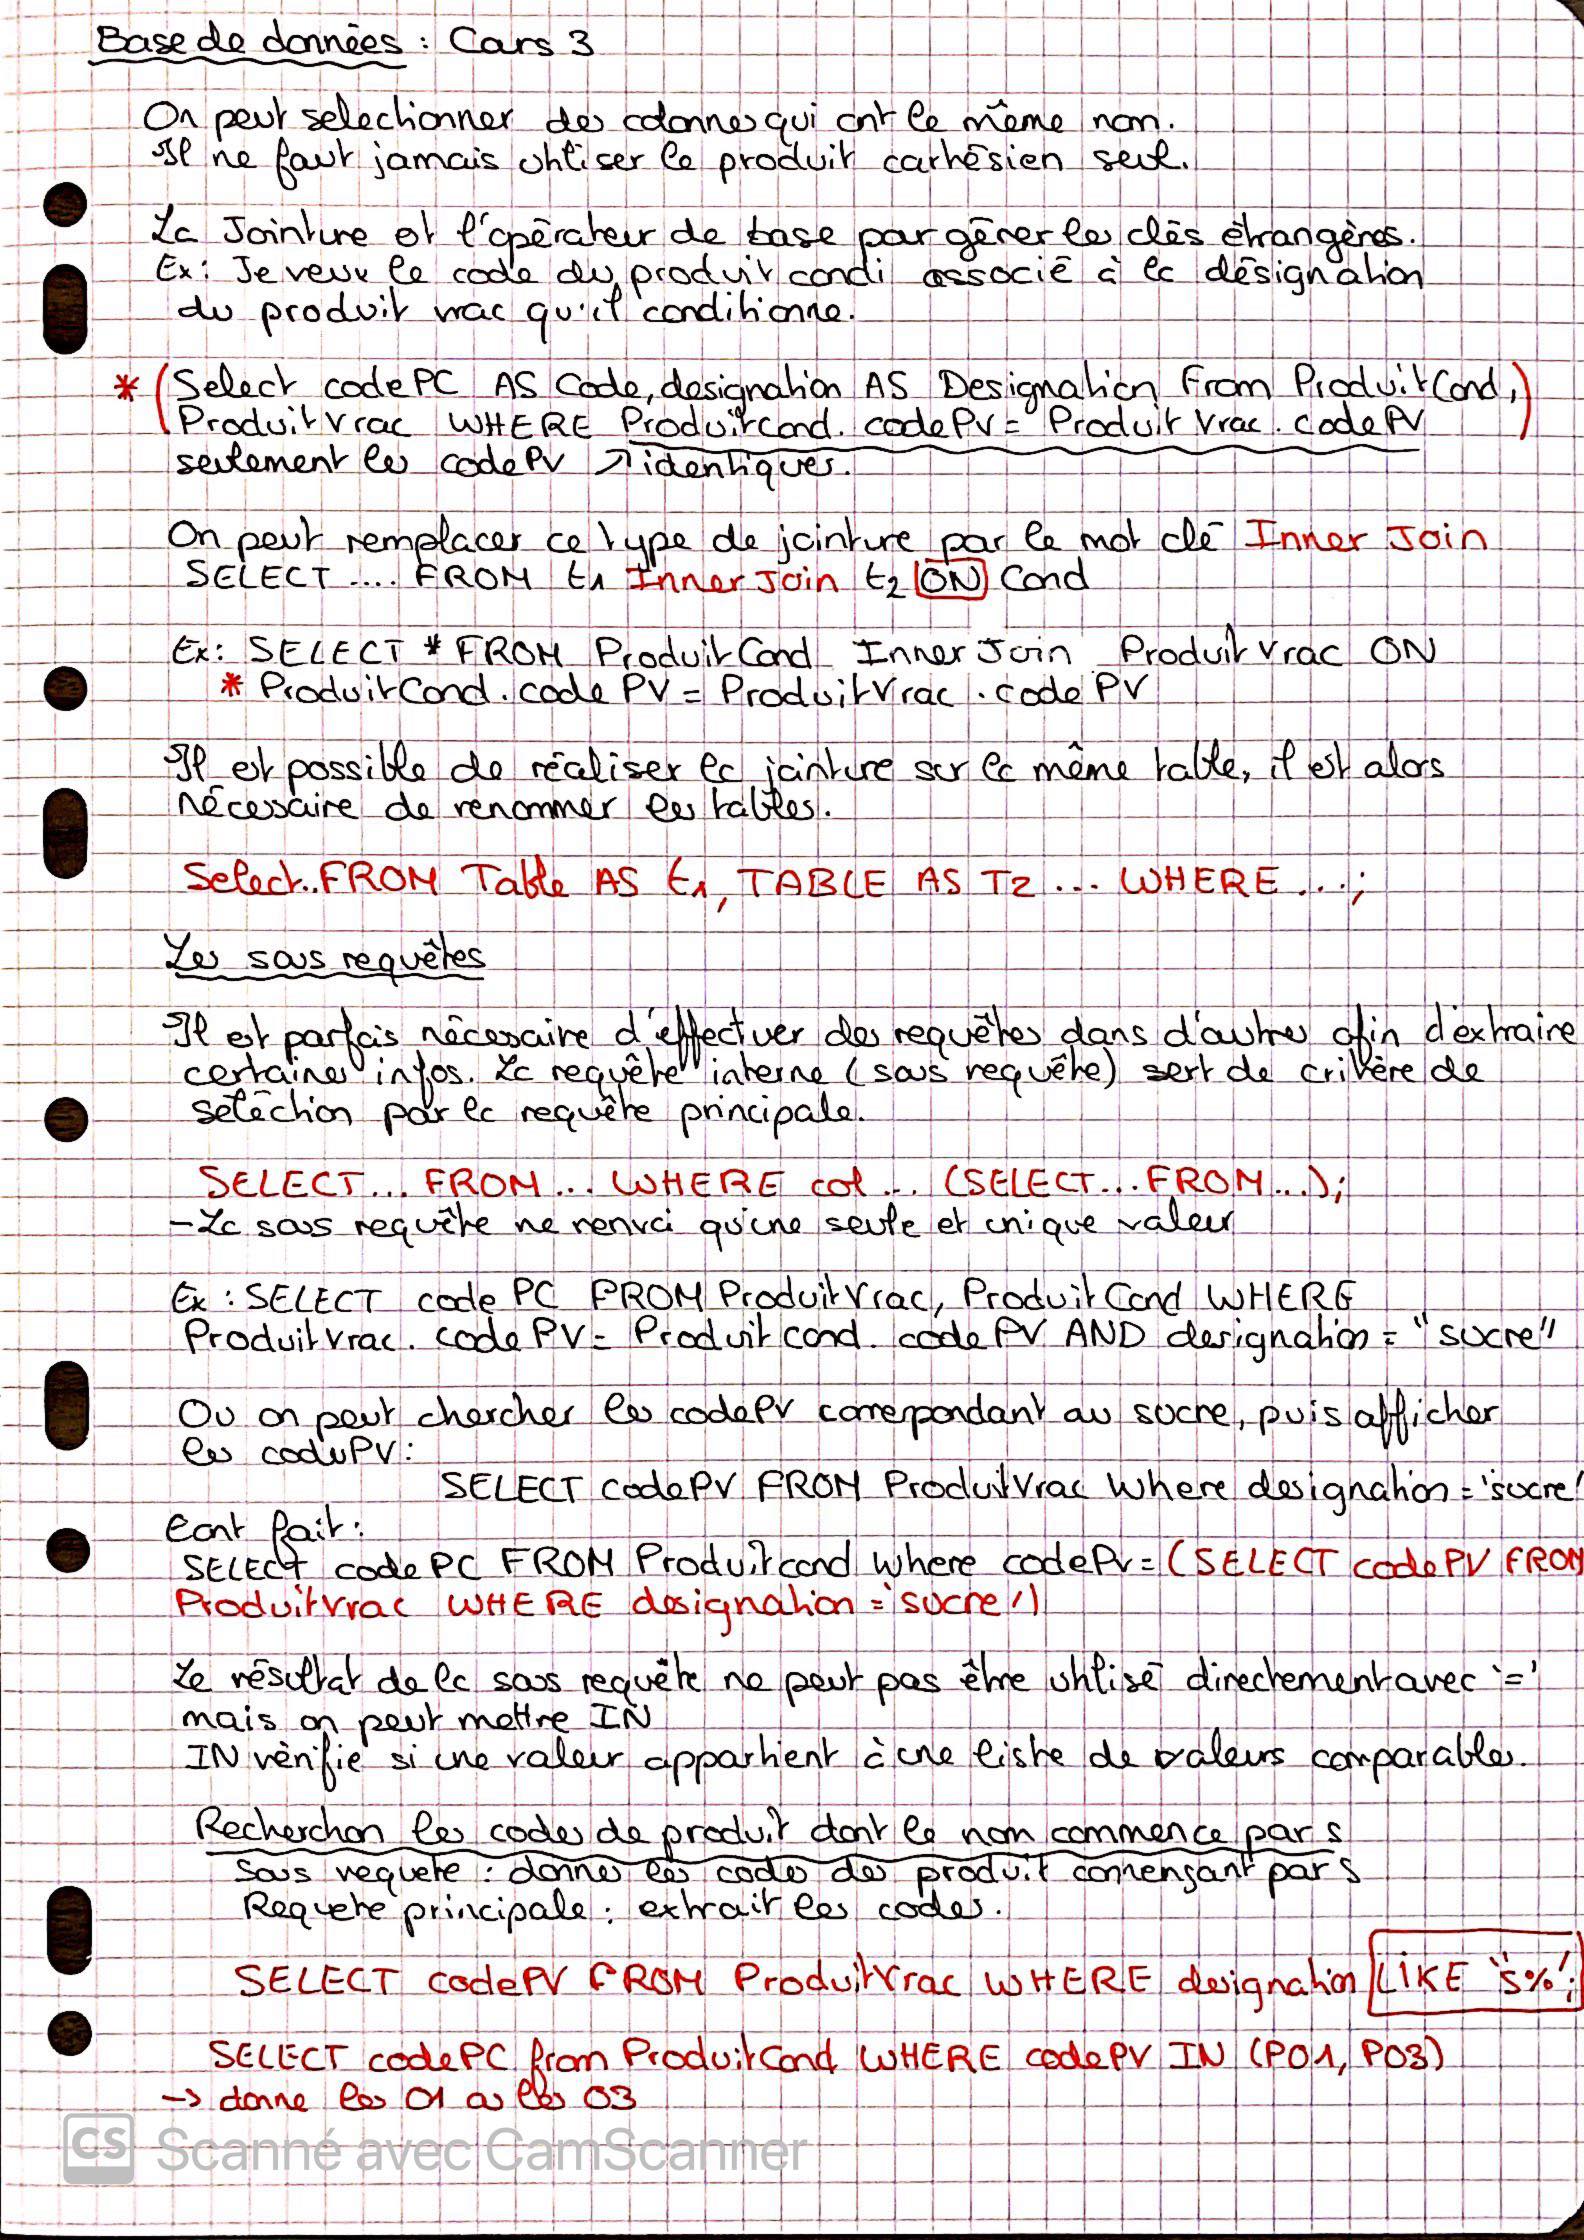 Base de données : Cours 3
On peut selectionner des colonnes qui ont le même nom.
Il ne faut jamais utiliser le produit carthésien seul.
La Jointure est l'opérateur de base pour gérer les clés étrangères.
Ex: Je veux le code du produit condi associé à la désignation
du produit vrac qu'il conditionne.
* (Select codePC AS Code, designation AS Designation From ProduitCond,
ProduitVrac WHERE Produitcond. codePV = ProduitVrac. codePV)
seulement les codePV ↗ identiques.
On peut remplacer ce type de jointure par le mot clé Inner Join
SELECT .... FROM t1 Inner Join t2 ON Cond
Ex: SELECT * FROM ProduitCond Inner Join ProduitVrac ON
* ProduitCond. codePV = ProduitVrac . codePV
Il est possible de réaliser la jointure sur la même table, il est alors
nécessaire de renommer les tables.
Select.. FROM Table AS t1, TABLE AS T2 ... WHERE ...;
Les sous requêtes
Il est parfois nécessaire d'effectuer des requêtes dans d'autres afin d'extraire
certaines infos. La requête interne (sous requête) sert de critère de
séléction pour la requête principale.
SELECT... FROM... WHERE col... (SELECT... FROM...);
- La sous requête ne renvoi qu'une seule et unique valeur
Ex : SELECT codePC FROM ProduitVrac, ProduitCond WHERE
ProduitVrac. codePV = Produitcond. codePV AND designation = "sucre"
Ou on peut chercher les codePV correspondant au sucre, puis afficher
les codesPV:
SELECT codePV FROM ProduitVrac Where designation = 'sucre'
Cont fait:
SELECT codePC FROM Produitcond where codePV = (SELECT codePV FROM
ProduitVrac WHERE designation = 'sucre')
Le résultat de la sous requête ne peut pas être utilisé directement avec '='
mais on peut mettre IN
IN vérifie si une valeur appartient à une liste de valeurs comparables.
Recherchon les codes de produit dont le nom commence par s
Sous requete : donne les codes des produit començant par s
Requete principale : extrait les codes.
SELECT codePV FROM ProduitVrac WHERE designation LIKE 's%';
SELECT codePC from ProduitCond WHERE codePV IN (P01, P03)
→ donne les 01 as les 03
CS Scanné avec CamScanner